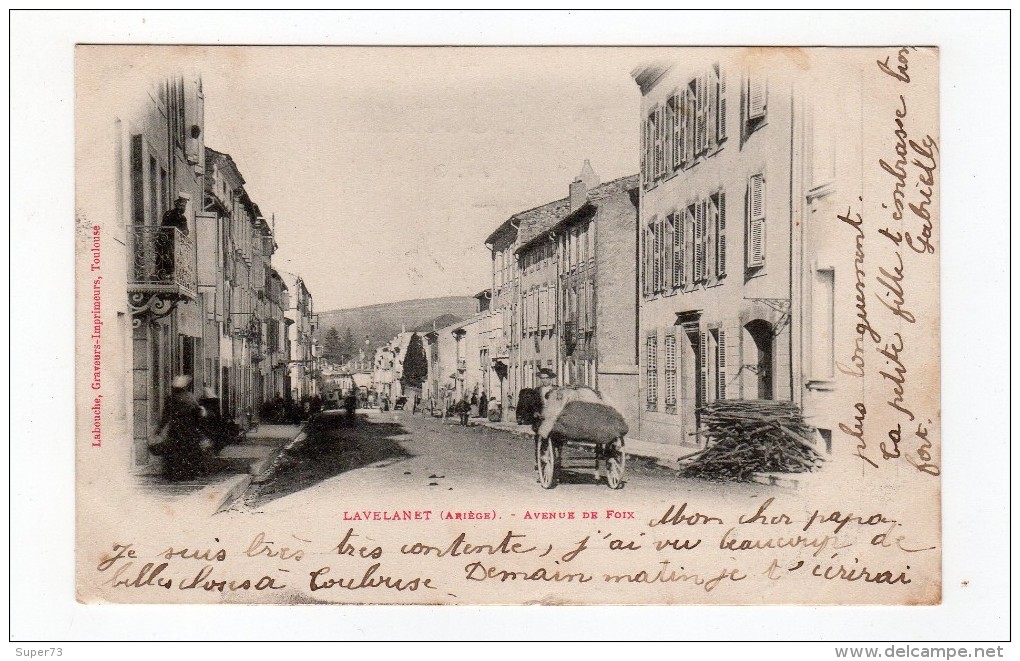 Labouche, Graveurs-Imprimeurs, Toulouse
LAVELANET (ARIÈGE). - AVENUE DE FOIX
Mon cher papa
Je suis très très contente, j'ai vu beaucoup de
belles choses à Toulouse. Demain matin je t'écrirai
plus longuement.
ta petite fille t'embrasse bien
fort.
Gabrielle
Super73
www.delcampe.net